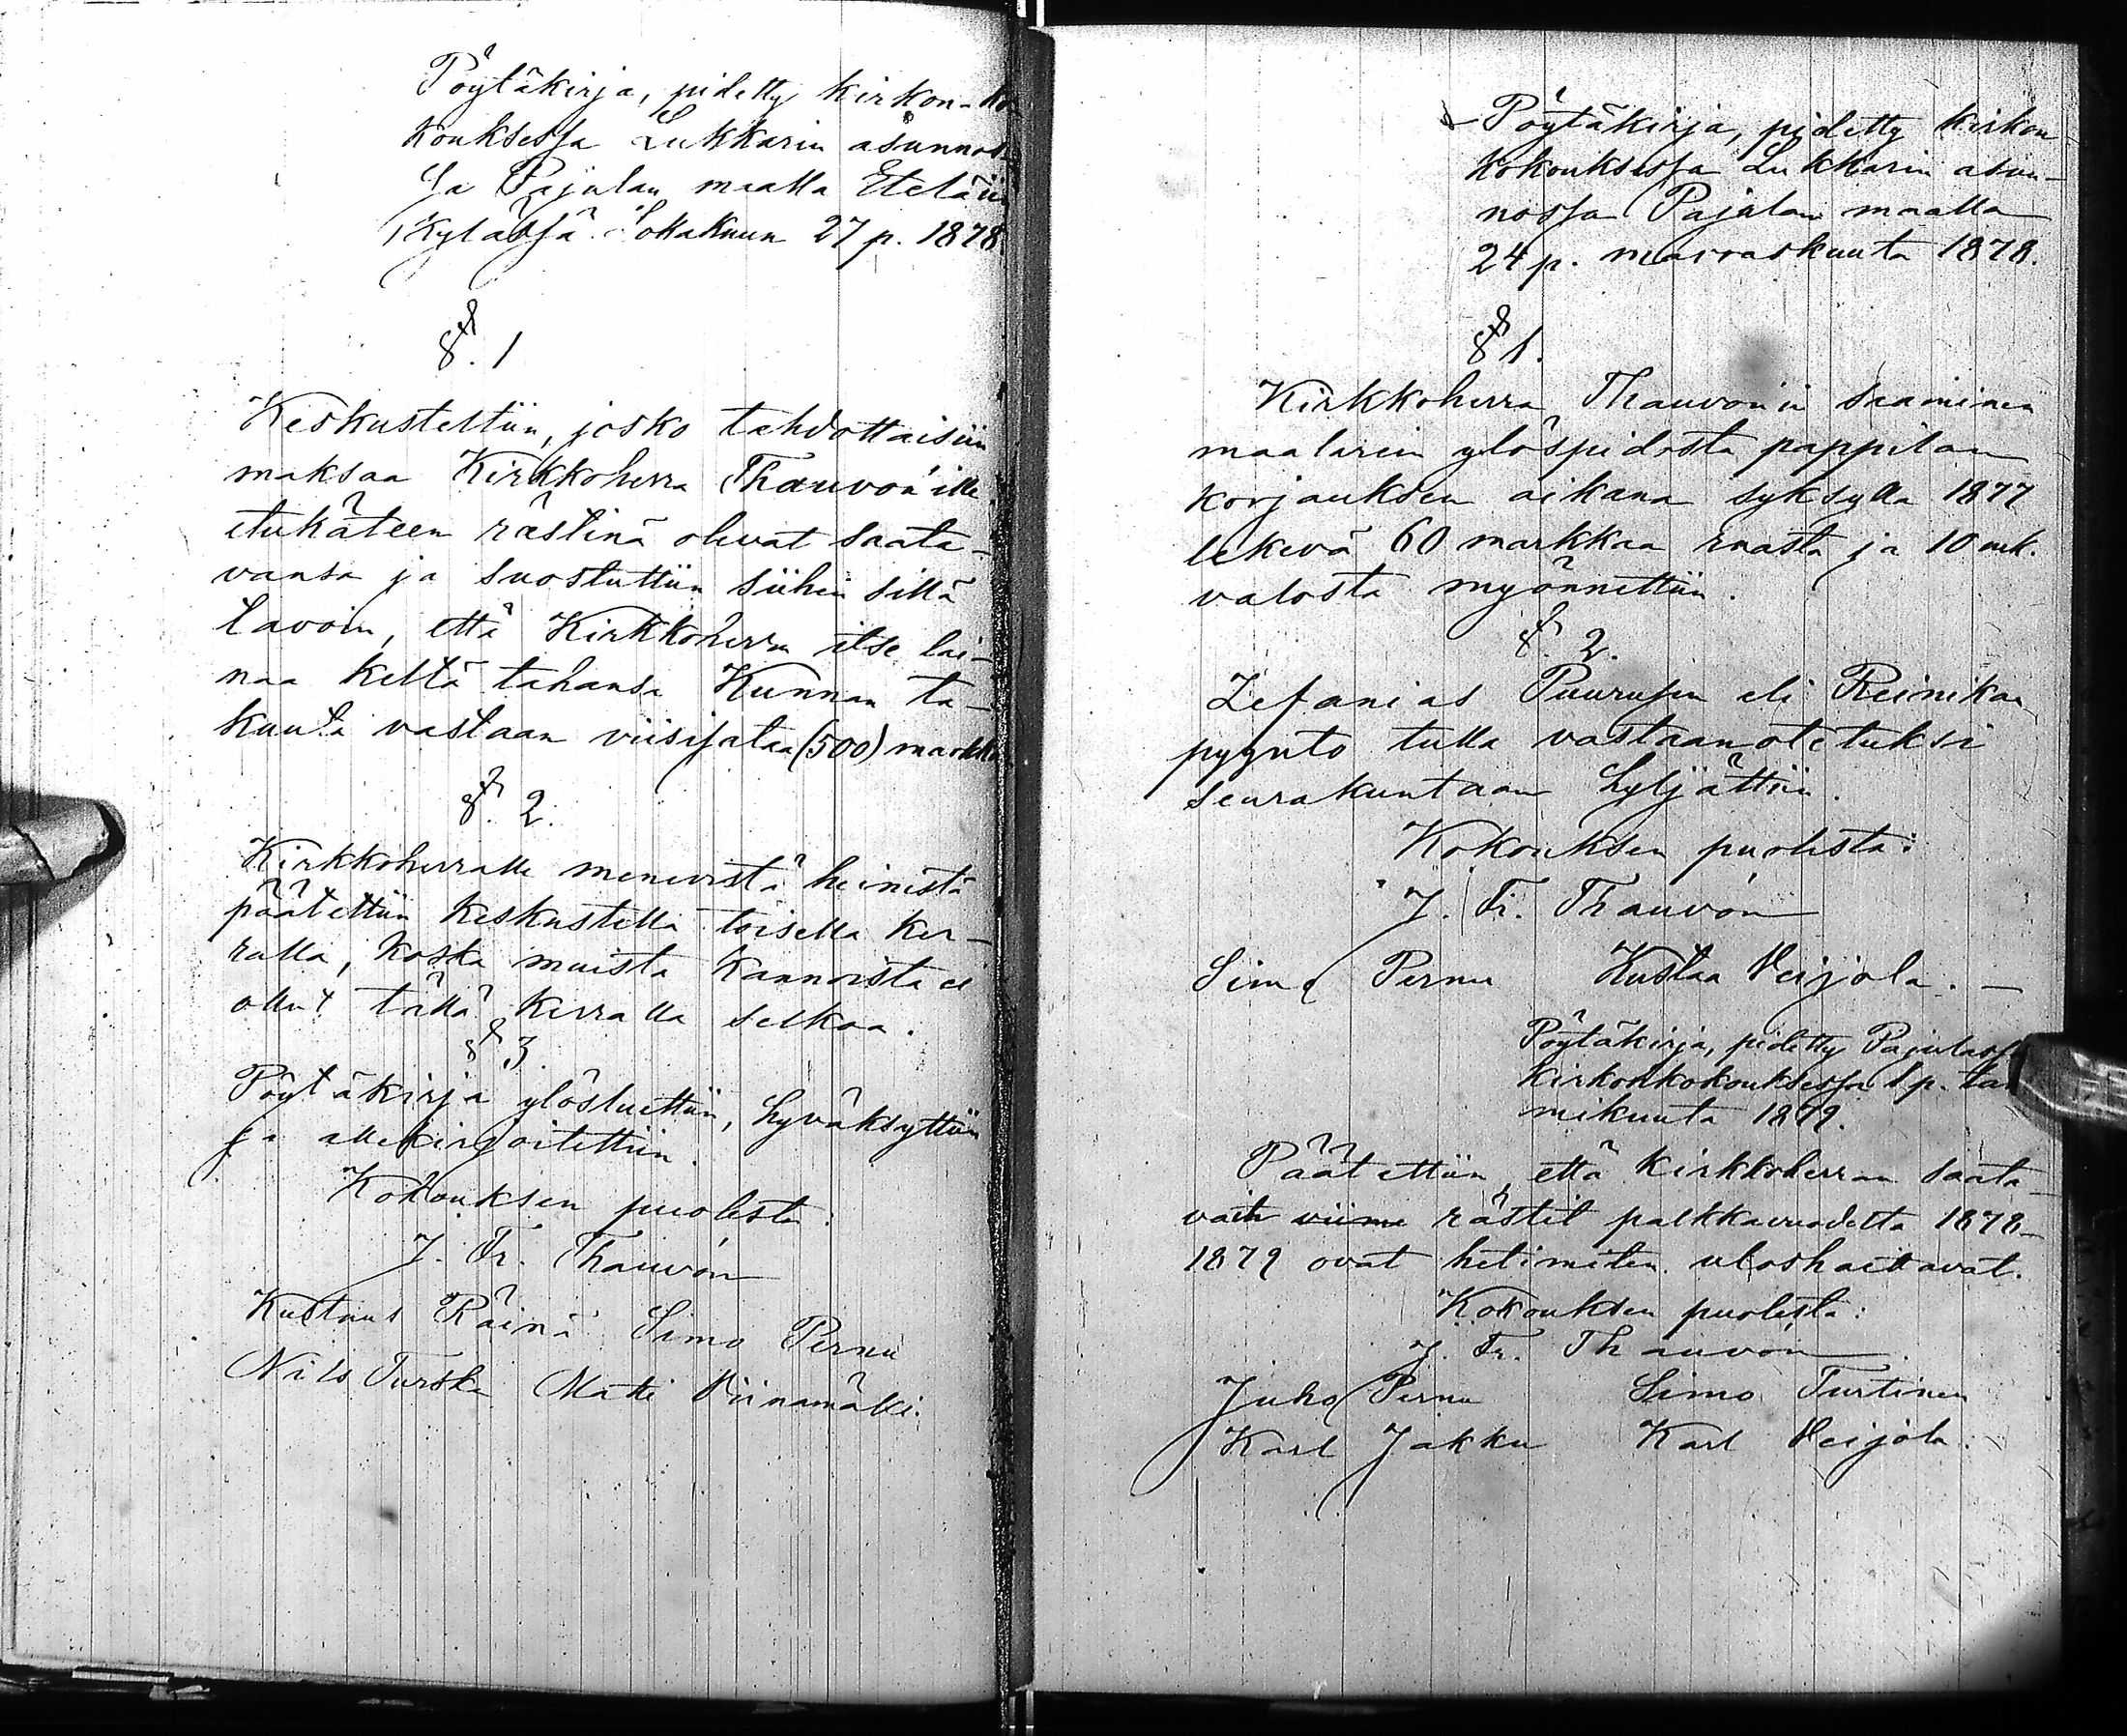 Pöytäkirja, pidetty kirkon-ko
kouksessa Lukkarin asunnos
sa Pajulan maalla Etelän
Kylässä Lokakuun 27 p. 1878.
§. 1
Keskusteltiin, josko tahdottaisiin
maksaa Kirkkoherra Thauvón'ille
etukäteen rästinä olevat saata-
vansa ja suostuttiin siihen sillä
tavoin, että Kirkkoherra itse lai-
naa keltä tahansa Kunnan ta-
kuuta vastaan viisisataa (500) markkaa
§. 2.
Kirkkoherralle menevistä heinistä
päätettiin keskustella toisella ker-
ralla, koska muista kannoista ei
ollut tällä kerralla selkoa.
§ 3
Pöytäkirja ylösluettiin, hyväksyttiin
ja allekirjoitettiin.
Kokouksen puolesta:
J. Fr. Thauvón
Kustaus Räinä Simo Pernu
Nils Turska Matti Viinamäki.
Pöytäkirja, pidetty kirkon-
kokouksessa Lukkarin asun-
nossa Pajulan maalla
24 p. marraskuuta 1878.
§ 1.
Kirkkoherra Thauvón'in saaminen
maalarin ylöspidosta pappilan
korjauksen aikana syksyllä 1877
tekevä 60 markkaa ruasta ja 10 mk.
valosta myönnettiin.
§. 2.
Zefanias Puurusen eli Reinikan
pyyntö tulla vastaanotetuksi
seurakuntaan hyljättiin.
Kokouksen puolesta:
J. Fr. Thauvón
Simo Pernu Kustaa Veijola. -
Pöytäkirja, pidetty Pajulassa
Kirkonkokouksessa 1 p. tam
mikuuta 1879.
Päätettiin, että Kirkkoherran saata-
vain viime rästit palkkavuodelta 1878-
1879 ovat hetimiten uloshaettavat.
Kokouksen puolesta:
J. Fr. Thauvón
Juho Pernu Simo Turtinen
Karl Jakku Karl Veijola.